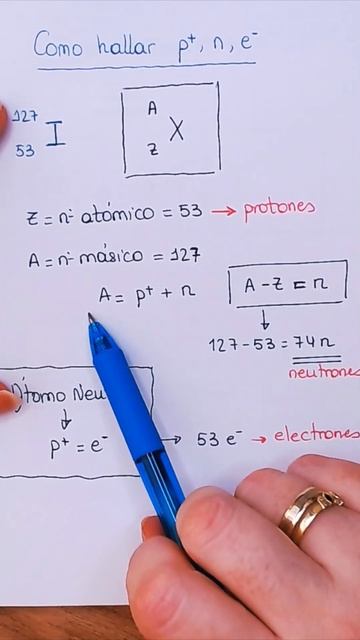 Como hallar p⁺, n, e⁻
127
53 I
A
Z X
Z = nº atómico = 53 → protones
A = nº másico = 127
A = p⁺ + n
A - Z = n
↓
127 - 53 = 74 n
neutrones
↓
p⁺ = e⁻ → 53 e⁻ → electrones